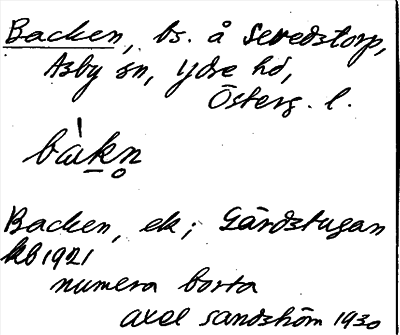 Backen, bs. å Sevedstorp,
Asby sn, Ydre hd,
Österg. l.
bàkn̥
Backen, ek; Gårdstugan
kb 1921
numera borta
Axel Sandström 1930